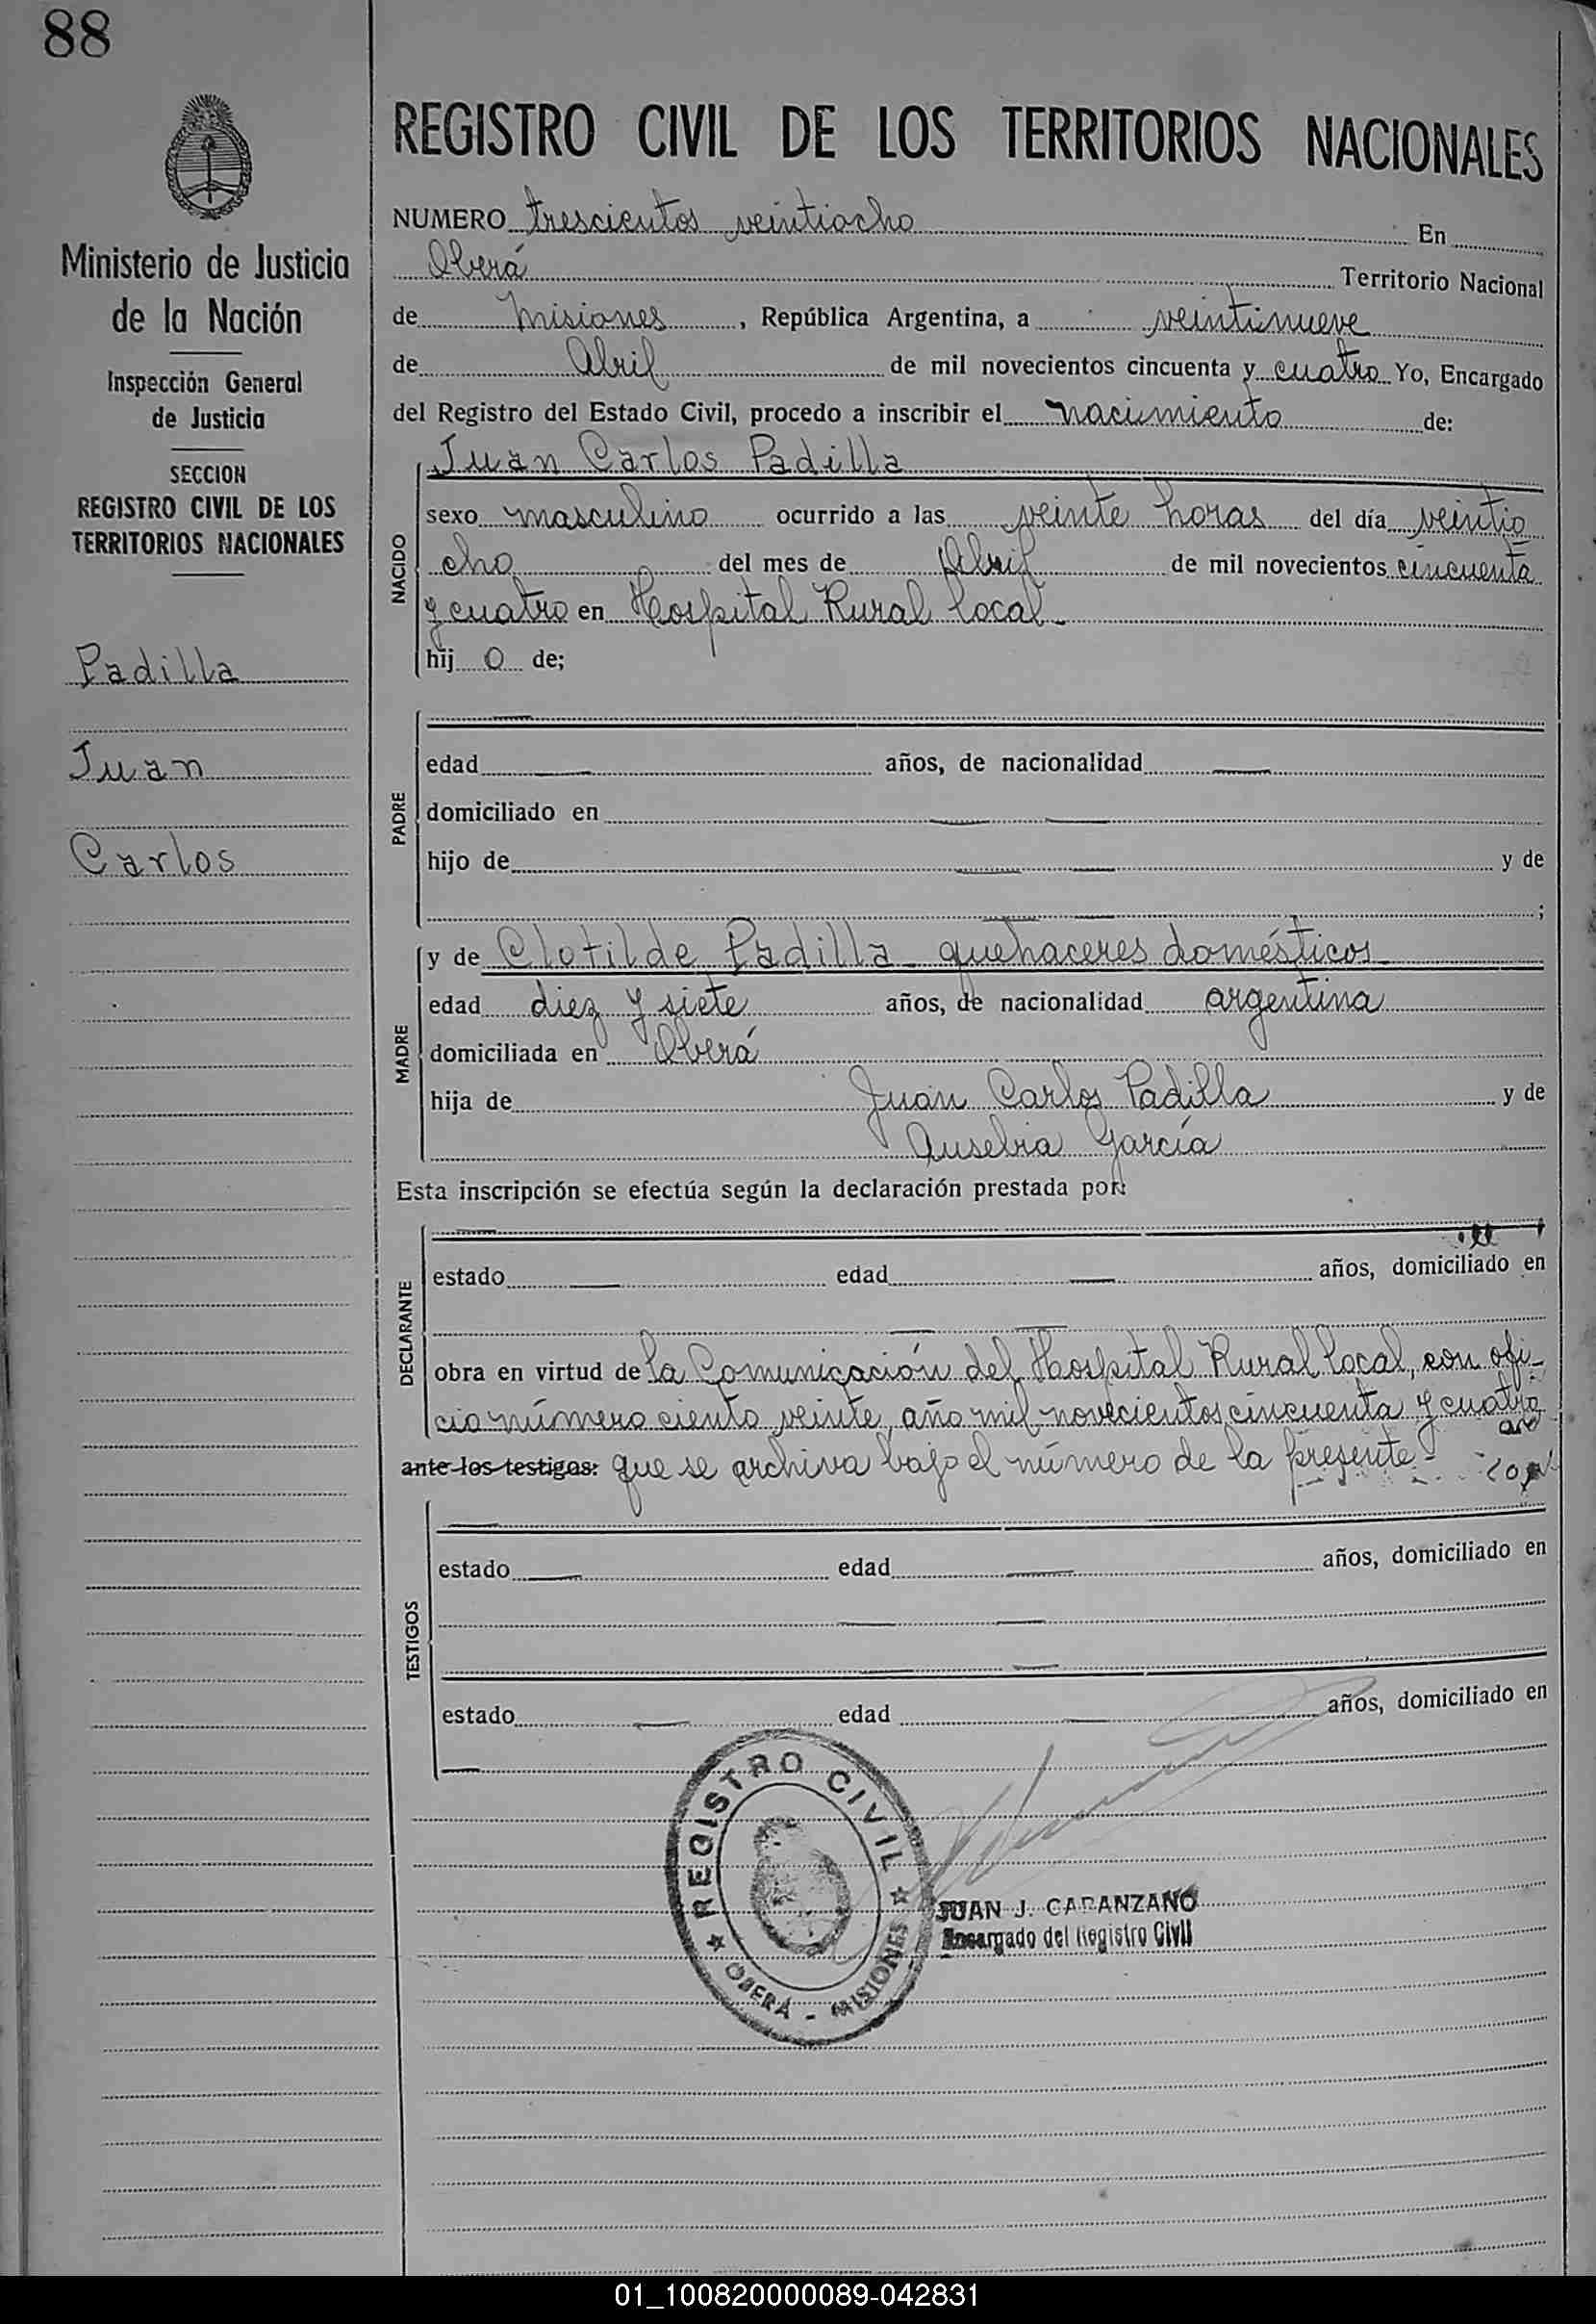 88
Ministerio de Justicia
de la Nación
Inspección General
de Justicia
SECCION
REGISTRO CIVIL DE LOS
TERRITORIOS NACIONALES
Padilla
Juan
Carlos
REGISTRO CIVIL DE LOS TERRITORIOS NACIONALES
NUMERO trescientos veintiocho En
Oberá Territorio Nacional
de Misiones, República Argentina, a veintinueve
de Abril de mil novecientos cincuenta y cuatro Yo, Encargado
del Registro del Estado Civil, procedo a inscribir el nacimiento de:
NACIDO
Juan Carlos Padilla
sexo masculino ocurrido a las veinte horas del día veintio
cho del mes de Abril de mil novecientos cincuenta
y cuatro en Hospital Rural local
hij o de;
PADRE
edad años, de nacionalidad
domiciliado en
hijo de y de
;
MADRE
y de Clotilde Padilla - quehaceres domésticos
edad diez y siete años, de nacionalidad argentina
domiciliada en Oberá
hija de Juan Carlos Padilla y de
Ausebia García
Esta inscripción se efectúa según la declaración prestada por:
DECLARANTE
estado edad años, domiciliado en
obra en virtud de la Comunicación del Hospital Rural local, con ofi-
cio número ciento veinte, año mil novecientos cincuenta y cuatro
ante los testigos: que se archiva bajo el número de la presente-
TESTIGOS
estado edad años, domiciliado en
estado edad años, domiciliado en
REGISTRO CIVIL
OBERÁ - MISIONES
JUAN J. CAPANZANO
Encargado del Registro Civil
01_100820000089-042831